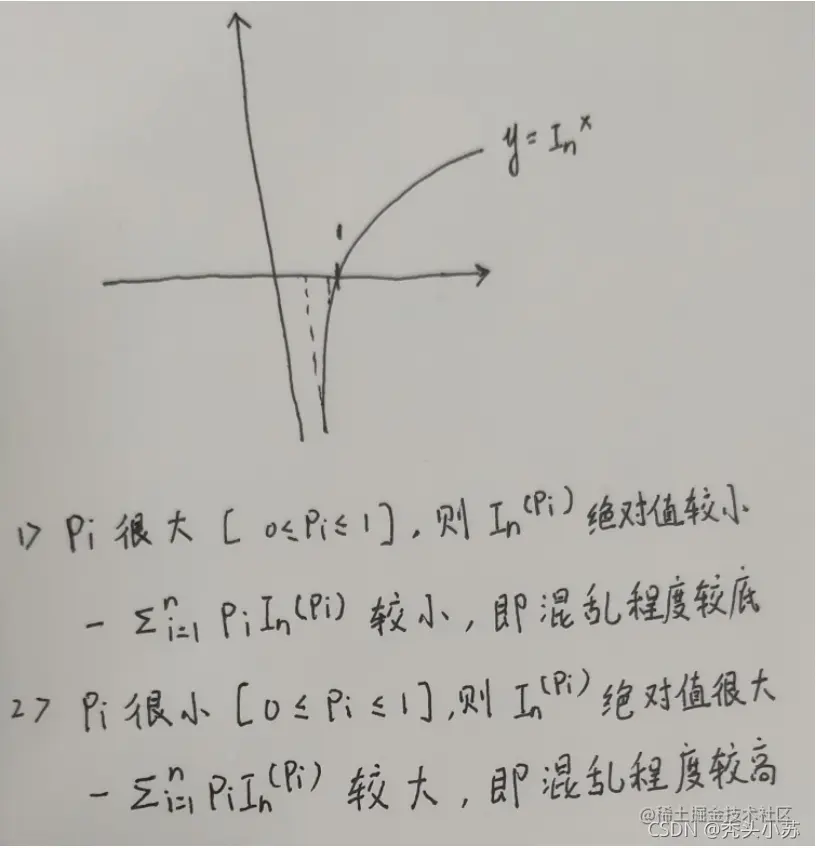 y = In^x
1
1> Pi 很大 [ 0≤Pi≤1 ], 则 In^(Pi) 绝对值较小
- Σ_{i=1}^n Pi In^(Pi) 较小, 即混乱程度较底
2> Pi 很小 [ 0≤Pi≤1 ], 则 In^(Pi) 绝对值很大
- Σ_{i=1}^n Pi In^(Pi) 较大, 即混乱程度较高
@稀土掘金技术社区
CSDN @秃头小苏